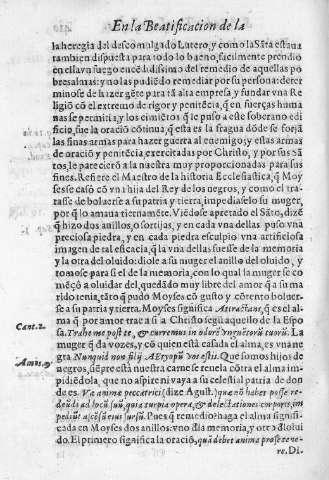 En la Beatificacion de la
la heregia del descomulgado Lutero, y como la Sãta estaua
tambien dispuesta para todo lo bueno, facilmente prendio
en ella vn fuego encẽdidissimo del remedio de aquellas po
bres almas: y no las pudiẽdo remediar por su persona: deter
minose de hazer gẽte para tã alta empresa, y fundar vna Re
ligiõ cõ el extremo de rigor y penitẽcia, q̃ en fuerças huma
nas se permitia, y los cimiẽtos q̃ le puso a este soberano edi
ficio, fue la oraciõ cõtinua, q̃ esta es la fragua dõde se forjã
las finas armas para hazer guerra al enemigo; y estas armas
de oraciõ y penitẽcia, exercitadas por Christo, y por sus Sã
tos, le parecierõ a la nuestra muy proporcionadas para sus
fines. Refiere el Maestro de la historia Ecclesiastica, q̃ Moy
ses se casò cõ vna hija del Rey de los negros, y como el tra-
tasse de boluerse a su patria y tierra, impediaselo su muger,
por q̃ lo amaua tiernamẽte. Viẽdose apretado el Sãto, dizẽ
q̃ hizo dos anillos, o sortijas, y en cada vna dellas puso vna
preciosa piedra, y en cada piedra esculpio vna artificiosa
imagen de tal eficacia, q̃ la vna dellas fuesse de la memoria
y la otra del oluido: diole a su muger el anillo del oluido, y
tomose para si el de la memoria, con lo qual la muger se co
mẽçò a oluidar del, quedãdo muy libre del amor q̃ a su ma
rido tenia, tãto q̃ pudo Moyses cõ gusto y cõtento boluer-
se a su patria y tierra. Moyses significa Attractans, q̃ es el al
ma q̃ por amor trae a si a Christo segũ aquello de la Espo
Cant. 2.
sa. Trahe me post te, & curremus in odorẽ vnguẽtorũ tuorũ. La
muger q̃ da vozes, y cõ quien està casada el alma, es vna ne
gra
Amos. 9
Nunquid non filij AEtyopũ vos estis. Que somos hijos de
negros, siẽpre està nuestra carne se renela cõtra el alma im-
pidiẽdola, que no aspire ni vaya a su celestial patria de don
de es. Væ animæ peccatrici (dize Agust.) quæ nõ habet posse re-
deũdi ad locũ suũ, quia turpia opera, & delectationes corporis, im
pediũt ascẽsũ eius sursũ. Pues q̃ remedio? haga el alma significa
cada en Moyses dos anillos: vno dla memoria, y otro dl olui
do. El primero significa la oraciõ, quã debet anima pro se tene-
re. Di.